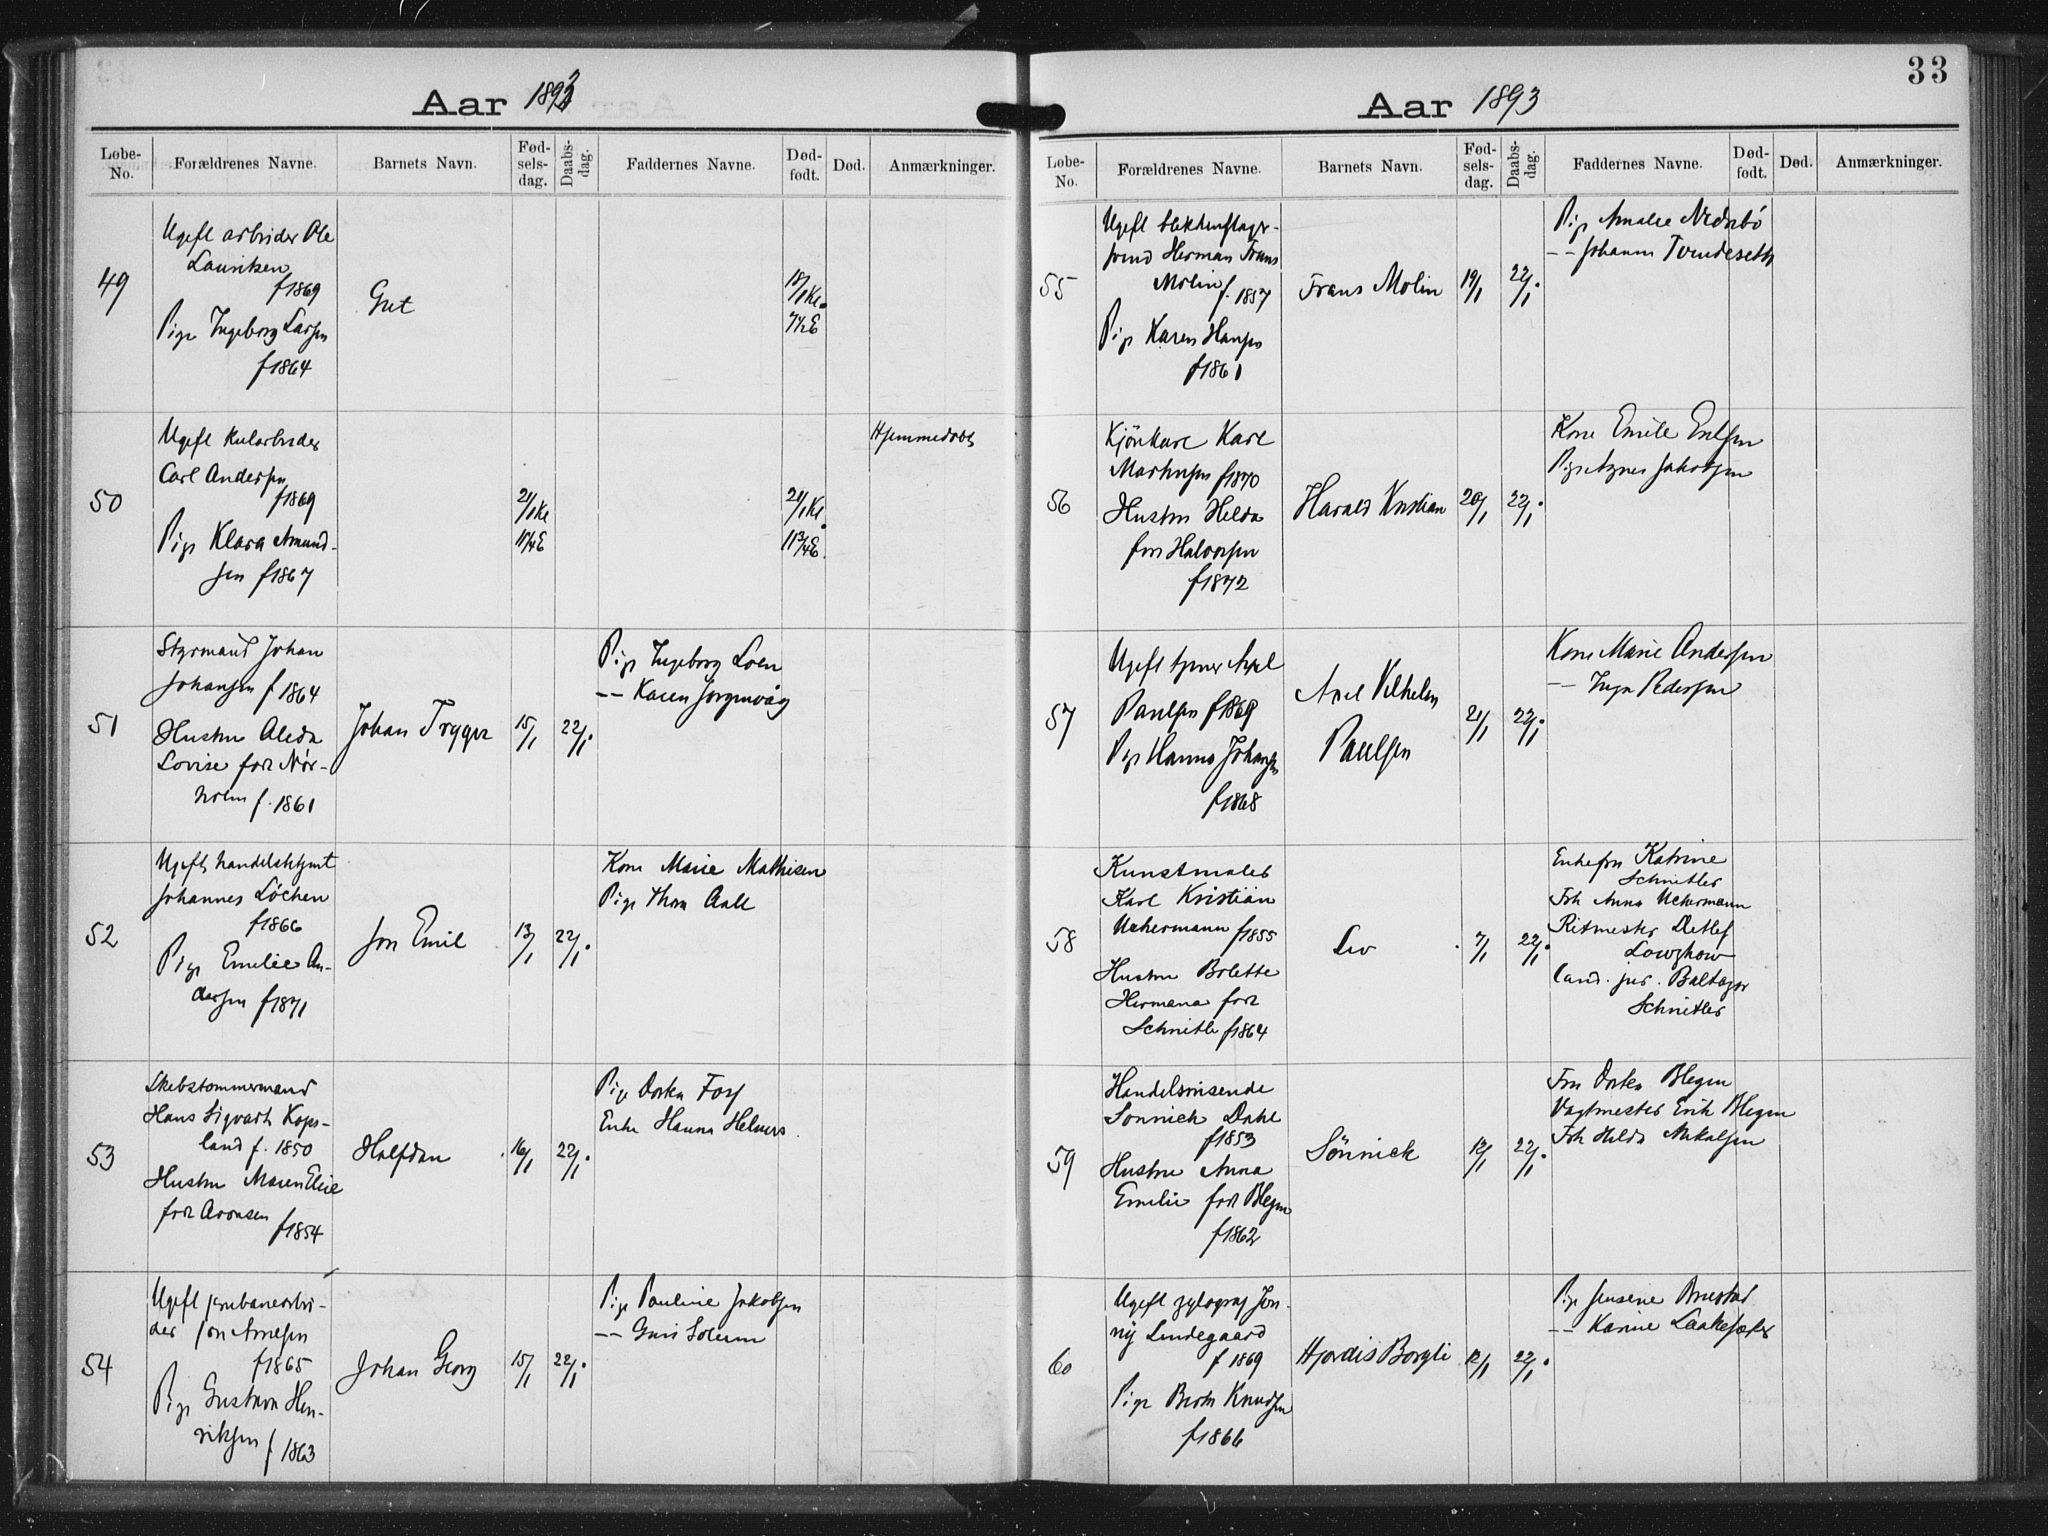 Aar 1893
Løbe-No. Forældrenes Navne. Barnets Navn. Fød-sels-dag. Daabs-dag. Faddernes Navne. Død-født. Død. Anmærkninger.
49
Ugift arbeider Ole
Lauritsen
f 1869
Pige Ingeborg Larsen
f 1864
18/1 Kl.
7½ E
50
Ugift
Carl Andersen
f 1869
Pige Klara Amund-
sen f 1867
21/1 Kl
11¼ E
21/1 Kl
11¾ E
Hjemmedøbt
51
Styrmand Johan
Johansen f 1864
Hustru Aleda
Lovise født Nør-
holm f. 1861
Johan Trygve
15/1
22/1.
Pige Ingeborg Loen
-- Karen Jørgenvåg
52
Ugift handelsbetjent
Johannes Löchen
f 1866
Pige Emelie An-
dersen f 1871
Jon Emil
13/1
22/1.
Kone Marie Mathisen
Pige Thora Aall
53
Skibstømmermand
Hans Sigvart Kops-
land f. 1850
Hustru Maren Elise
født Aronsen
f 1854
Halfdan
16/1
22/1.
Pige Dorka Foss
Enke Hanna Helmers
54
Ugift jernbanearbei-
der Jon Arnesen
f 1865
Pige Gustava Hen-
riksen f 1863
Johan Georg
15/1
22/1.
Pige Pauline Jakobsen
-- Guri Soleim
33
Aar 1893
Løbe-No. Forældrenes Navne. Barnets Navn. Fød-sels-dag. Daabs-dag. Faddernes Navne. Død-født. Død. Anmærkninger.
55
Ugift blikkenslager-
svend Herman Frans
Molin f. 1857
Pige Karen Hansen
f 1861
Frans Molin
19/1
22/1.
Pige Amalie Nedrebö
-- Johanne Tvendeseth
56
Karl
Martinsen f 1870
Hustru Hilda
født Halvorsen
f 1872
Harald Kristian
20/1
22/1.
Kone Emile Enlsen
Pige Agnes Jakobsen
57
Ugift tjener Axel
Paulsen f 1869
Pige Hanna Johansen
f 1868
Axel Vilhelm
Paulsen
21/1
22/1.
Kone Marie Andersen
-- Inga Pedersen
58
Kunstmaler
Karl Kristian
Uchermann f 1855
Hustru Bolette
Hermana født
Schnitler f 1864
Liv
7/1
22/1.
Enkefru Katrine
Schnitler
Frk Anna Uchermann
Ritmester Detlef
Lowzhow
Cand. jur. Baltazar
Schnitler
59
Handelsreisende
Sönnich Dahl
f 1853
Hustru Anna
Emilie født Blegen
f 1862
Sönnich
12/1
22/1.
Fru Dorka Blegen
Vagtmester Erik Blegen
Frk Hilda Mikalsen
60
Ugift zylograf Jon-
ny Lindegaard
f 1869
Pige Berta Knudsen
f 1866
Hjordis Borgli
12/1
22/1.
Pige Jensine Bruestad
-- Karine